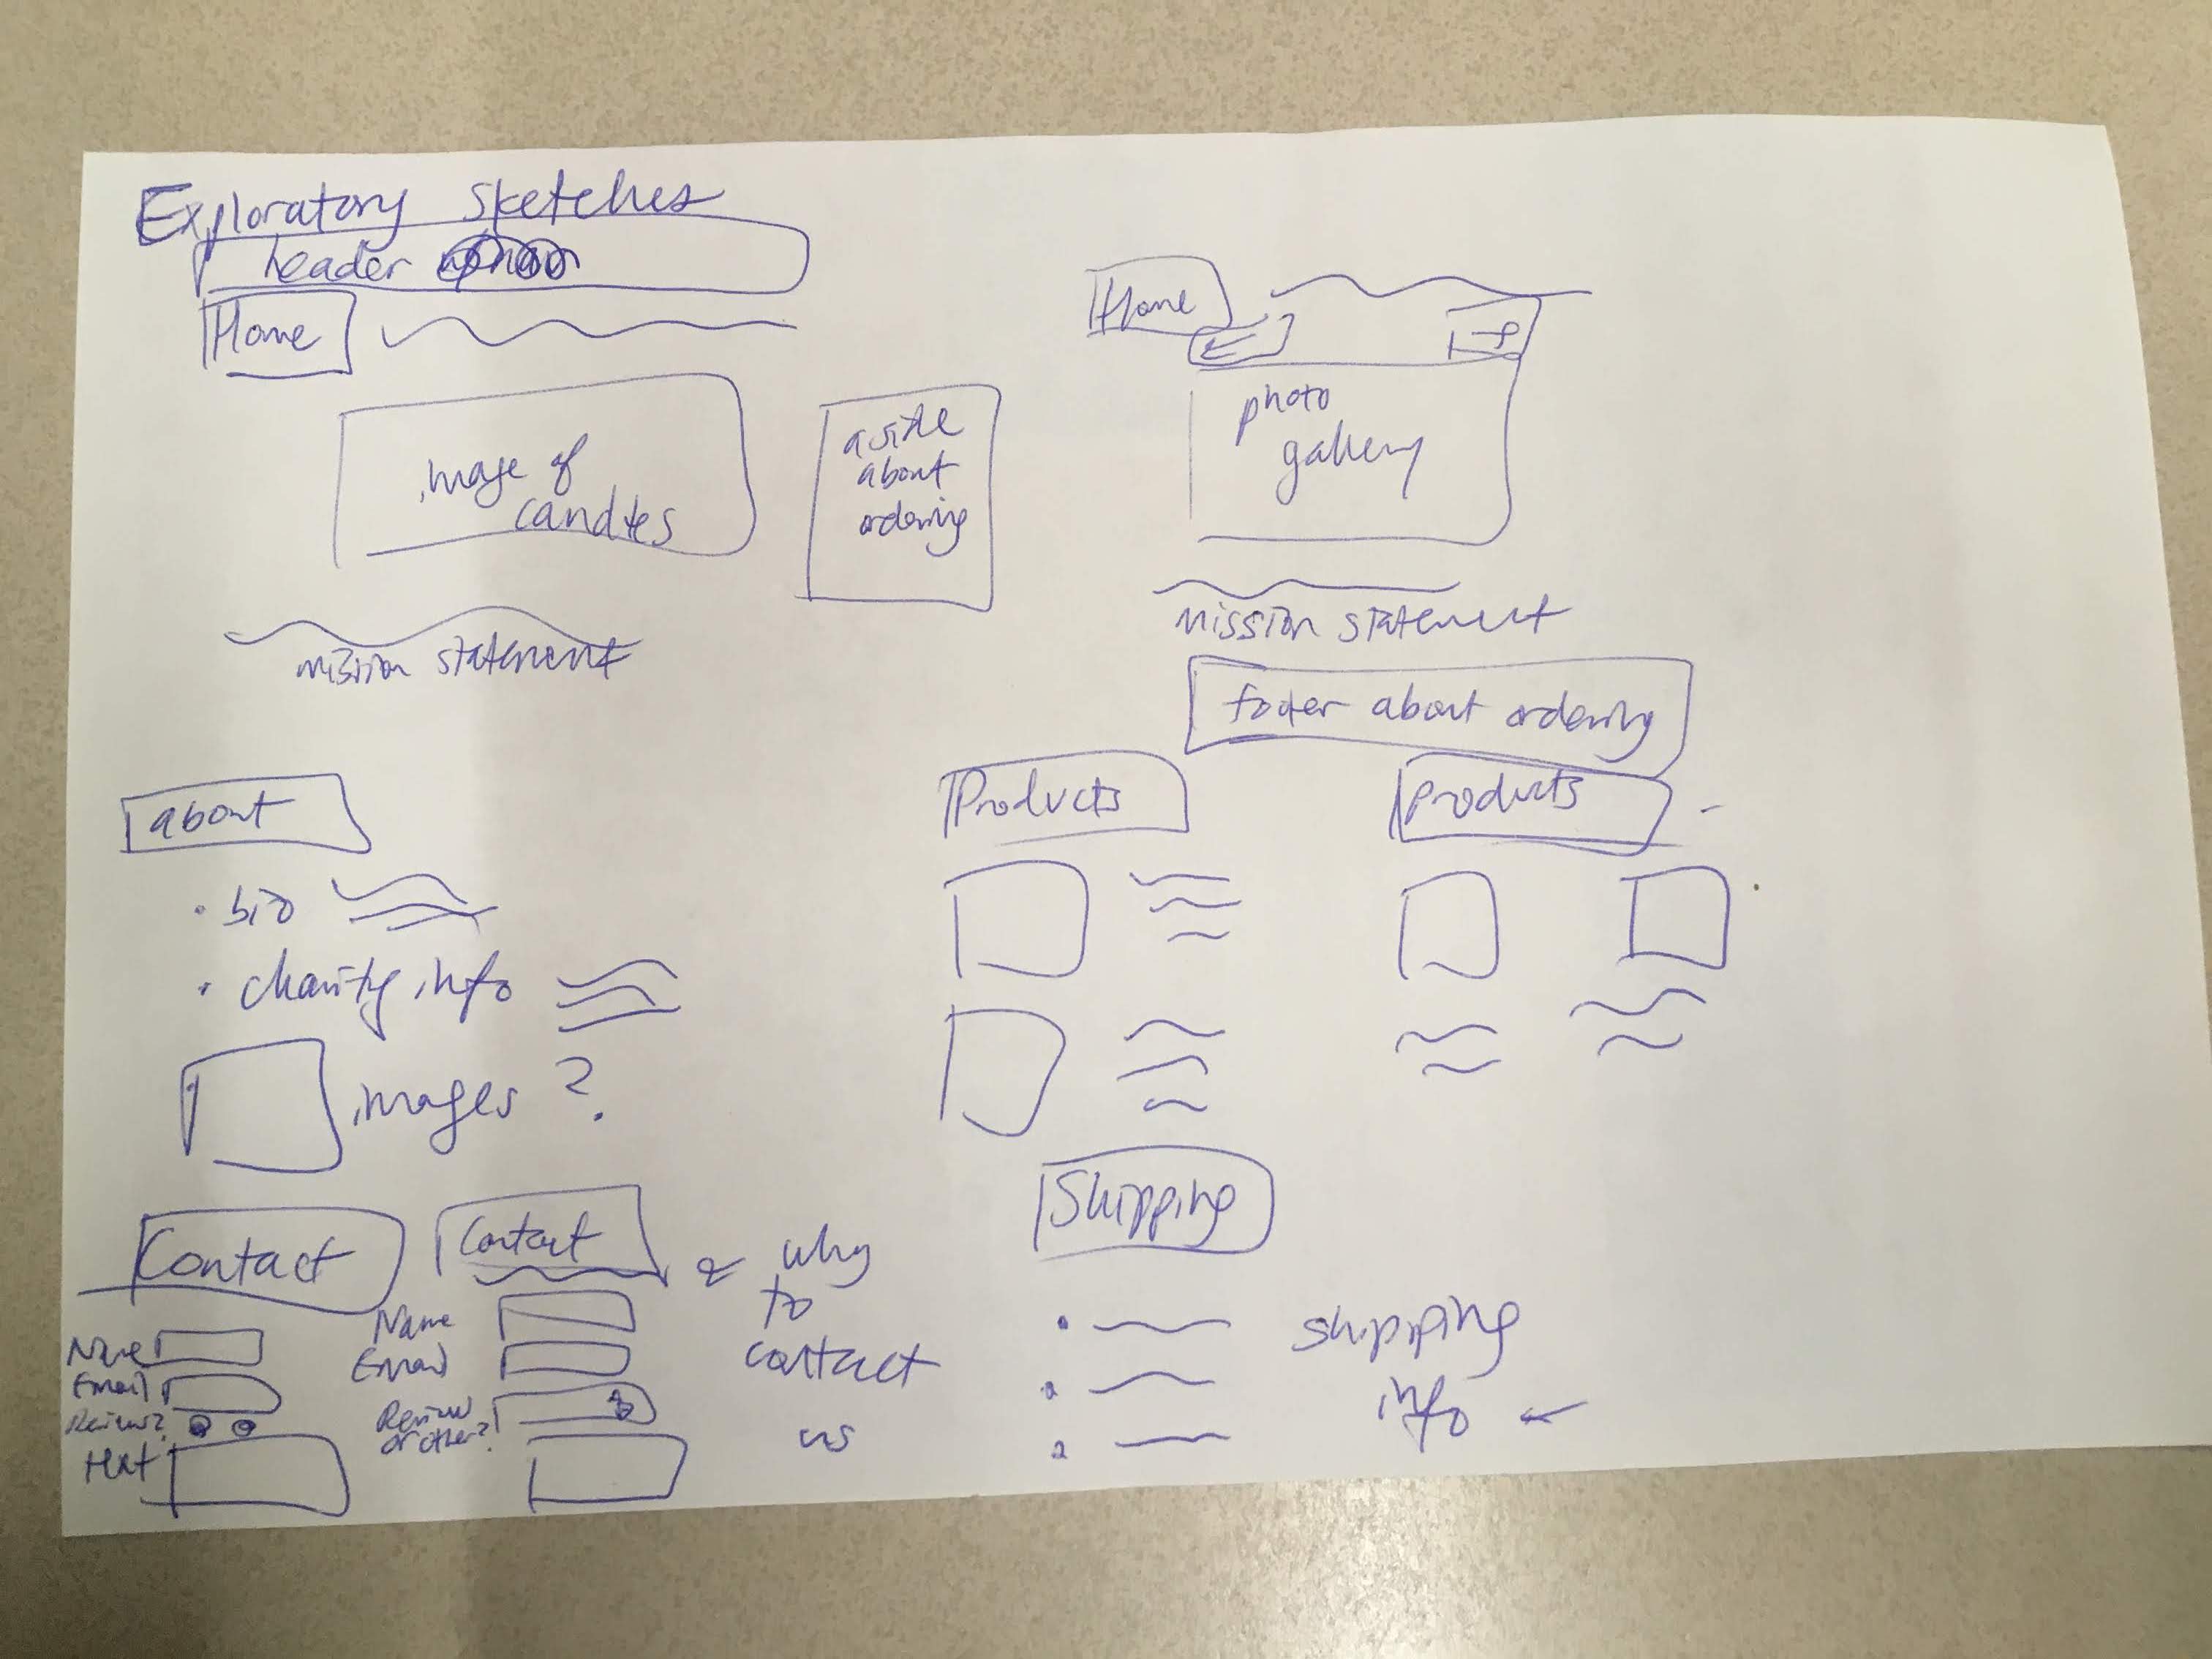 Exploratory Sketches
header
Home
image of
candles
aside
about
ordering
mission statement
Home
photo
gallery
mission statement
footer about ordering
about
• bio
• charity info
images ?
Products
Products
Contact
Name
Email
Review?
text
Contact
why
to
contact
us
Name
Email
Review
or other?
Shipping
shipping
info